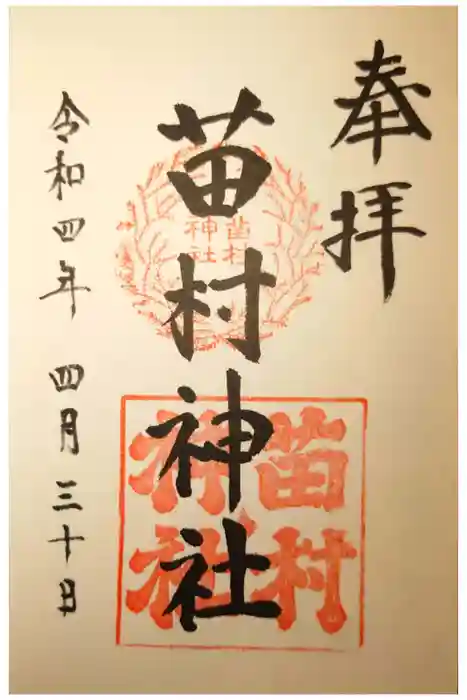 奉拝
苗村神社
苗村
神社
苗村
神社
令和四年 四月三十日